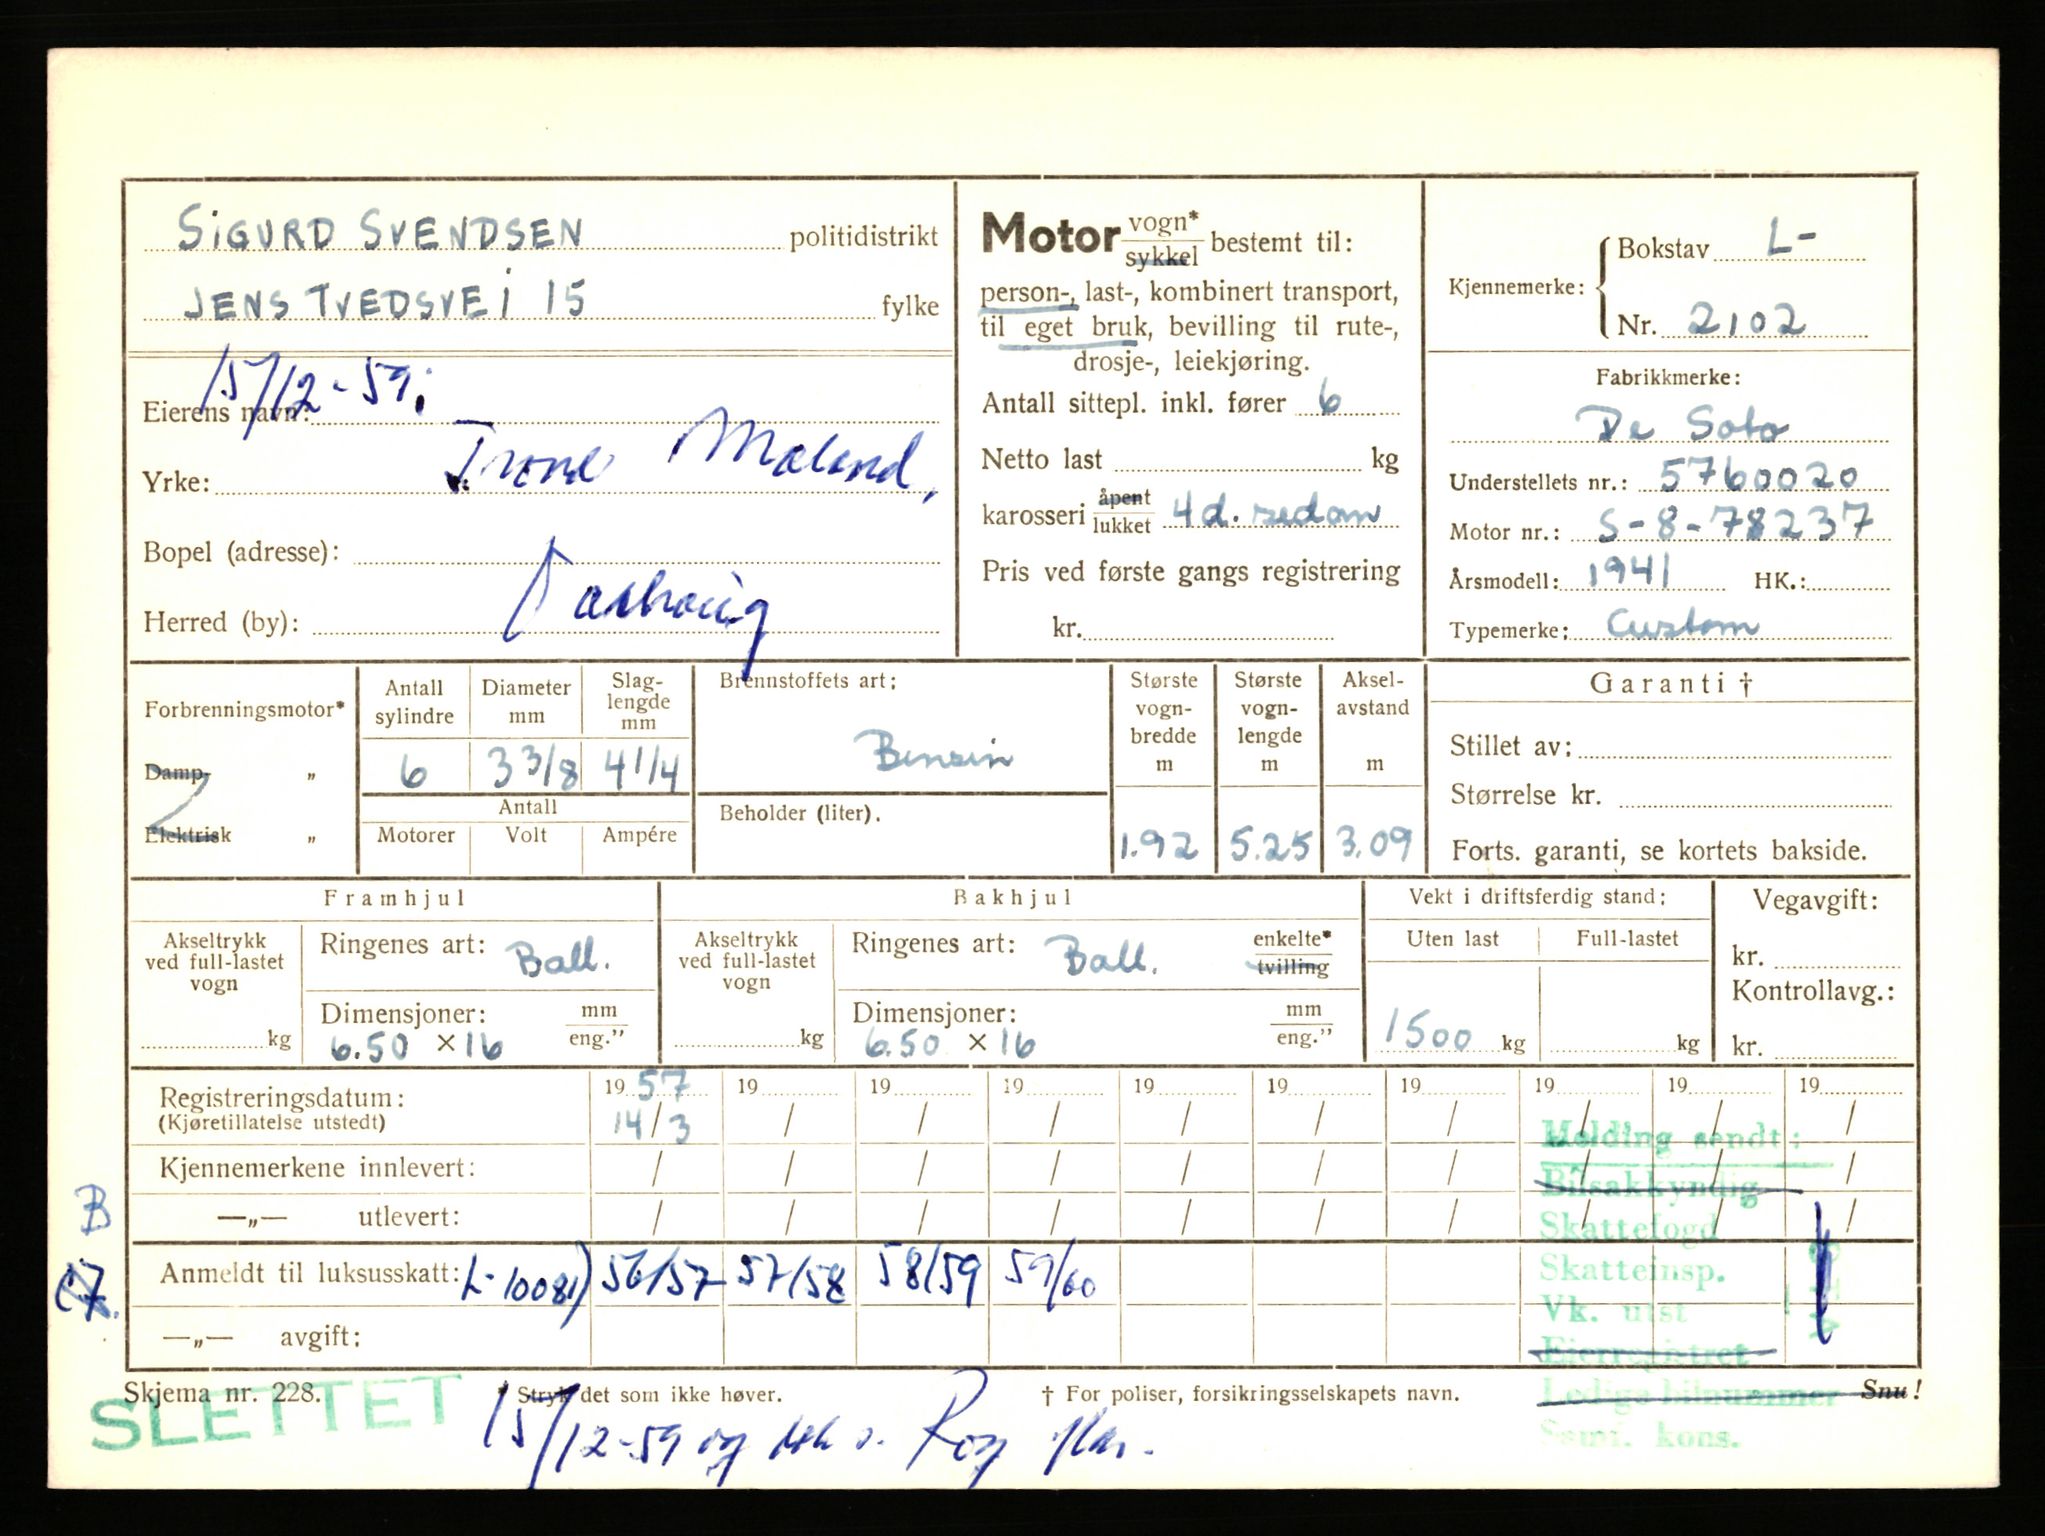 SIGURD SVENDSEN politidistrikt
JENS TVEDSVEI 15 fylke
15/12-59:
Eierens navn:
Yrke: Trond Maland,
Bopel (adresse):
Herred (by):
Motor vogn* sykkel bestemt til:
person-, last-, kombinert transport,
til eget bruk, bevilling til rute-,
drosje-, leiekjøring.
Antall sittepl. inkl. fører 6
Netto last kg
karosseri åpent lukket 4 d. sedan
Pris ved første gangs registrering
kr.
Kjennemerke: Bokstav L-
Nr. 2102
Fabrikkmerke:
De Soto
Understellets nr.: 5760020
Motor nr.: S-8-78237
Årsmodell: 1941 HK.:
Typemerke: Custom
Forbrenningsmotor*
Damp- „
Elektrisk „
Antall sylindre
6
Diameter mm
3 3/8
Slaglengde mm
4 1/4
Antall
Motorer Volt Ampére
Brennstoffets art:
Bensin
Beholder (liter).
Største vognbredde m
1.92
Største vognlengde m
5.25
Akselavstand m
3.09
Garanti †
Stillet av:
Størrelse kr.
Forts. garanti, se kortets bakside.
Framhjul
Akseltrykk ved full-lastet vogn
kg
Ringenes art: Ball.
Dimensjoner: mm eng.”
6.50 × 16
Bakhjul
Akseltrykk ved full-lastet vogn
kg
Ringenes art: Ball. enkelte* tvilling
Dimensjoner: mm eng.”
6.50 × 16
Vekt i driftsferdig stand:
Uten last Full-lastet
1500 kg kg
Vegavgift:
kr.
Kontrollavg.:
kr.
Registreringsdatum: 19 57 19 19 19 19 19 19 19 19 19
(Kjøretillatelse utstedt) 14/3 / / / / / / / / /
Kjennemerkene innlevert: / / / / / / / / / /
B —„— utlevert: / / / / / / / / / /
Anmeldt til luksusskatt: L-10081) 56/57 57/58 58/59 59/60
—„— avgift:
Melding sendt:
Bilsakkyndig
Skattefogd
Skatteinsp.
Vk. utst
Eierregistret
Ledige bilnummer
Saml. kons.
Skjema nr. 228. * Stryk det som ikke høver. † For poliser, forsikringsselskapets navn. Snu!
SLETTET
15/12-59 og